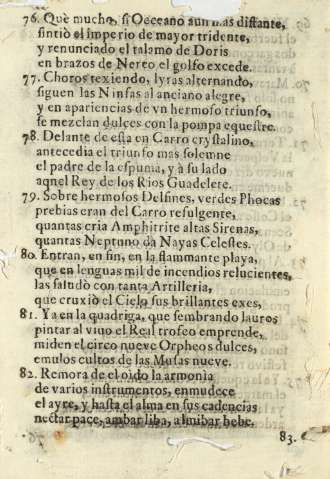 76. Què mucho, si Occeano aun mas distante,
sintiò el imperio de mayor tridente,
y renunciado el talamo de Doris
en brazos de Nereo el golfo excede.
77. Choros texiendo, lyras alternando,
siguen las Ninfas al anciano alegre,
y en apariencias de vn hermoso triunfo,
se mezclan dulces con la pompa equestre.
78. Delante de esta en Carro crystalino,
antecedia el triunfo mas solemne
el padre de la espuma, y à su lado
aqnel Rey de los Rios Guadelete.
79. Sobre hermosos Delfines, verdes Phocas
prebias eran del Carro refulgente,
quantas cria Amphitrite altas Sirenas,
quantas Neptuno da Nayas Celestes.
80. Entran, en fin, en la flammante playa,
que en lenguas mil de incendios relucientes,
las saludò con tanta Artilleria,
que cruxiò el Cielo sus brillantes exes,
81. Ya en la quadriga, que sembrando lauros
pintar al viuo el Real trofeo emprende,
miden el circo nueve Orpheos dulces,
emulos cultos de las Musas nueve.
82. Remora de el oìdo la armonìa
de varios instrumentos, enmudece
el ayre, y hasta el alma en sus cadencias
nectar pace, ambar liba, almibar bebe.
83.